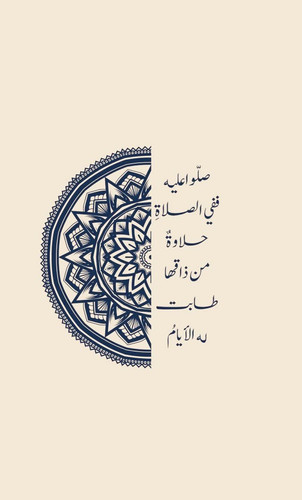 صلّوا عليه
ففي الصلاةِ
حلاوةٌ
من ذاقها
طابت
له الأيامُ